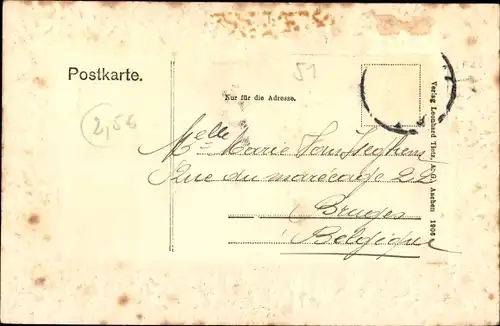 Postkarte.
51
Nur für die Adresse.
2,56
Melle Marie
Rue du marécage 22
Bruges
Belgique
Verlag Leonhard Tietz, A.G. Aachen 1906